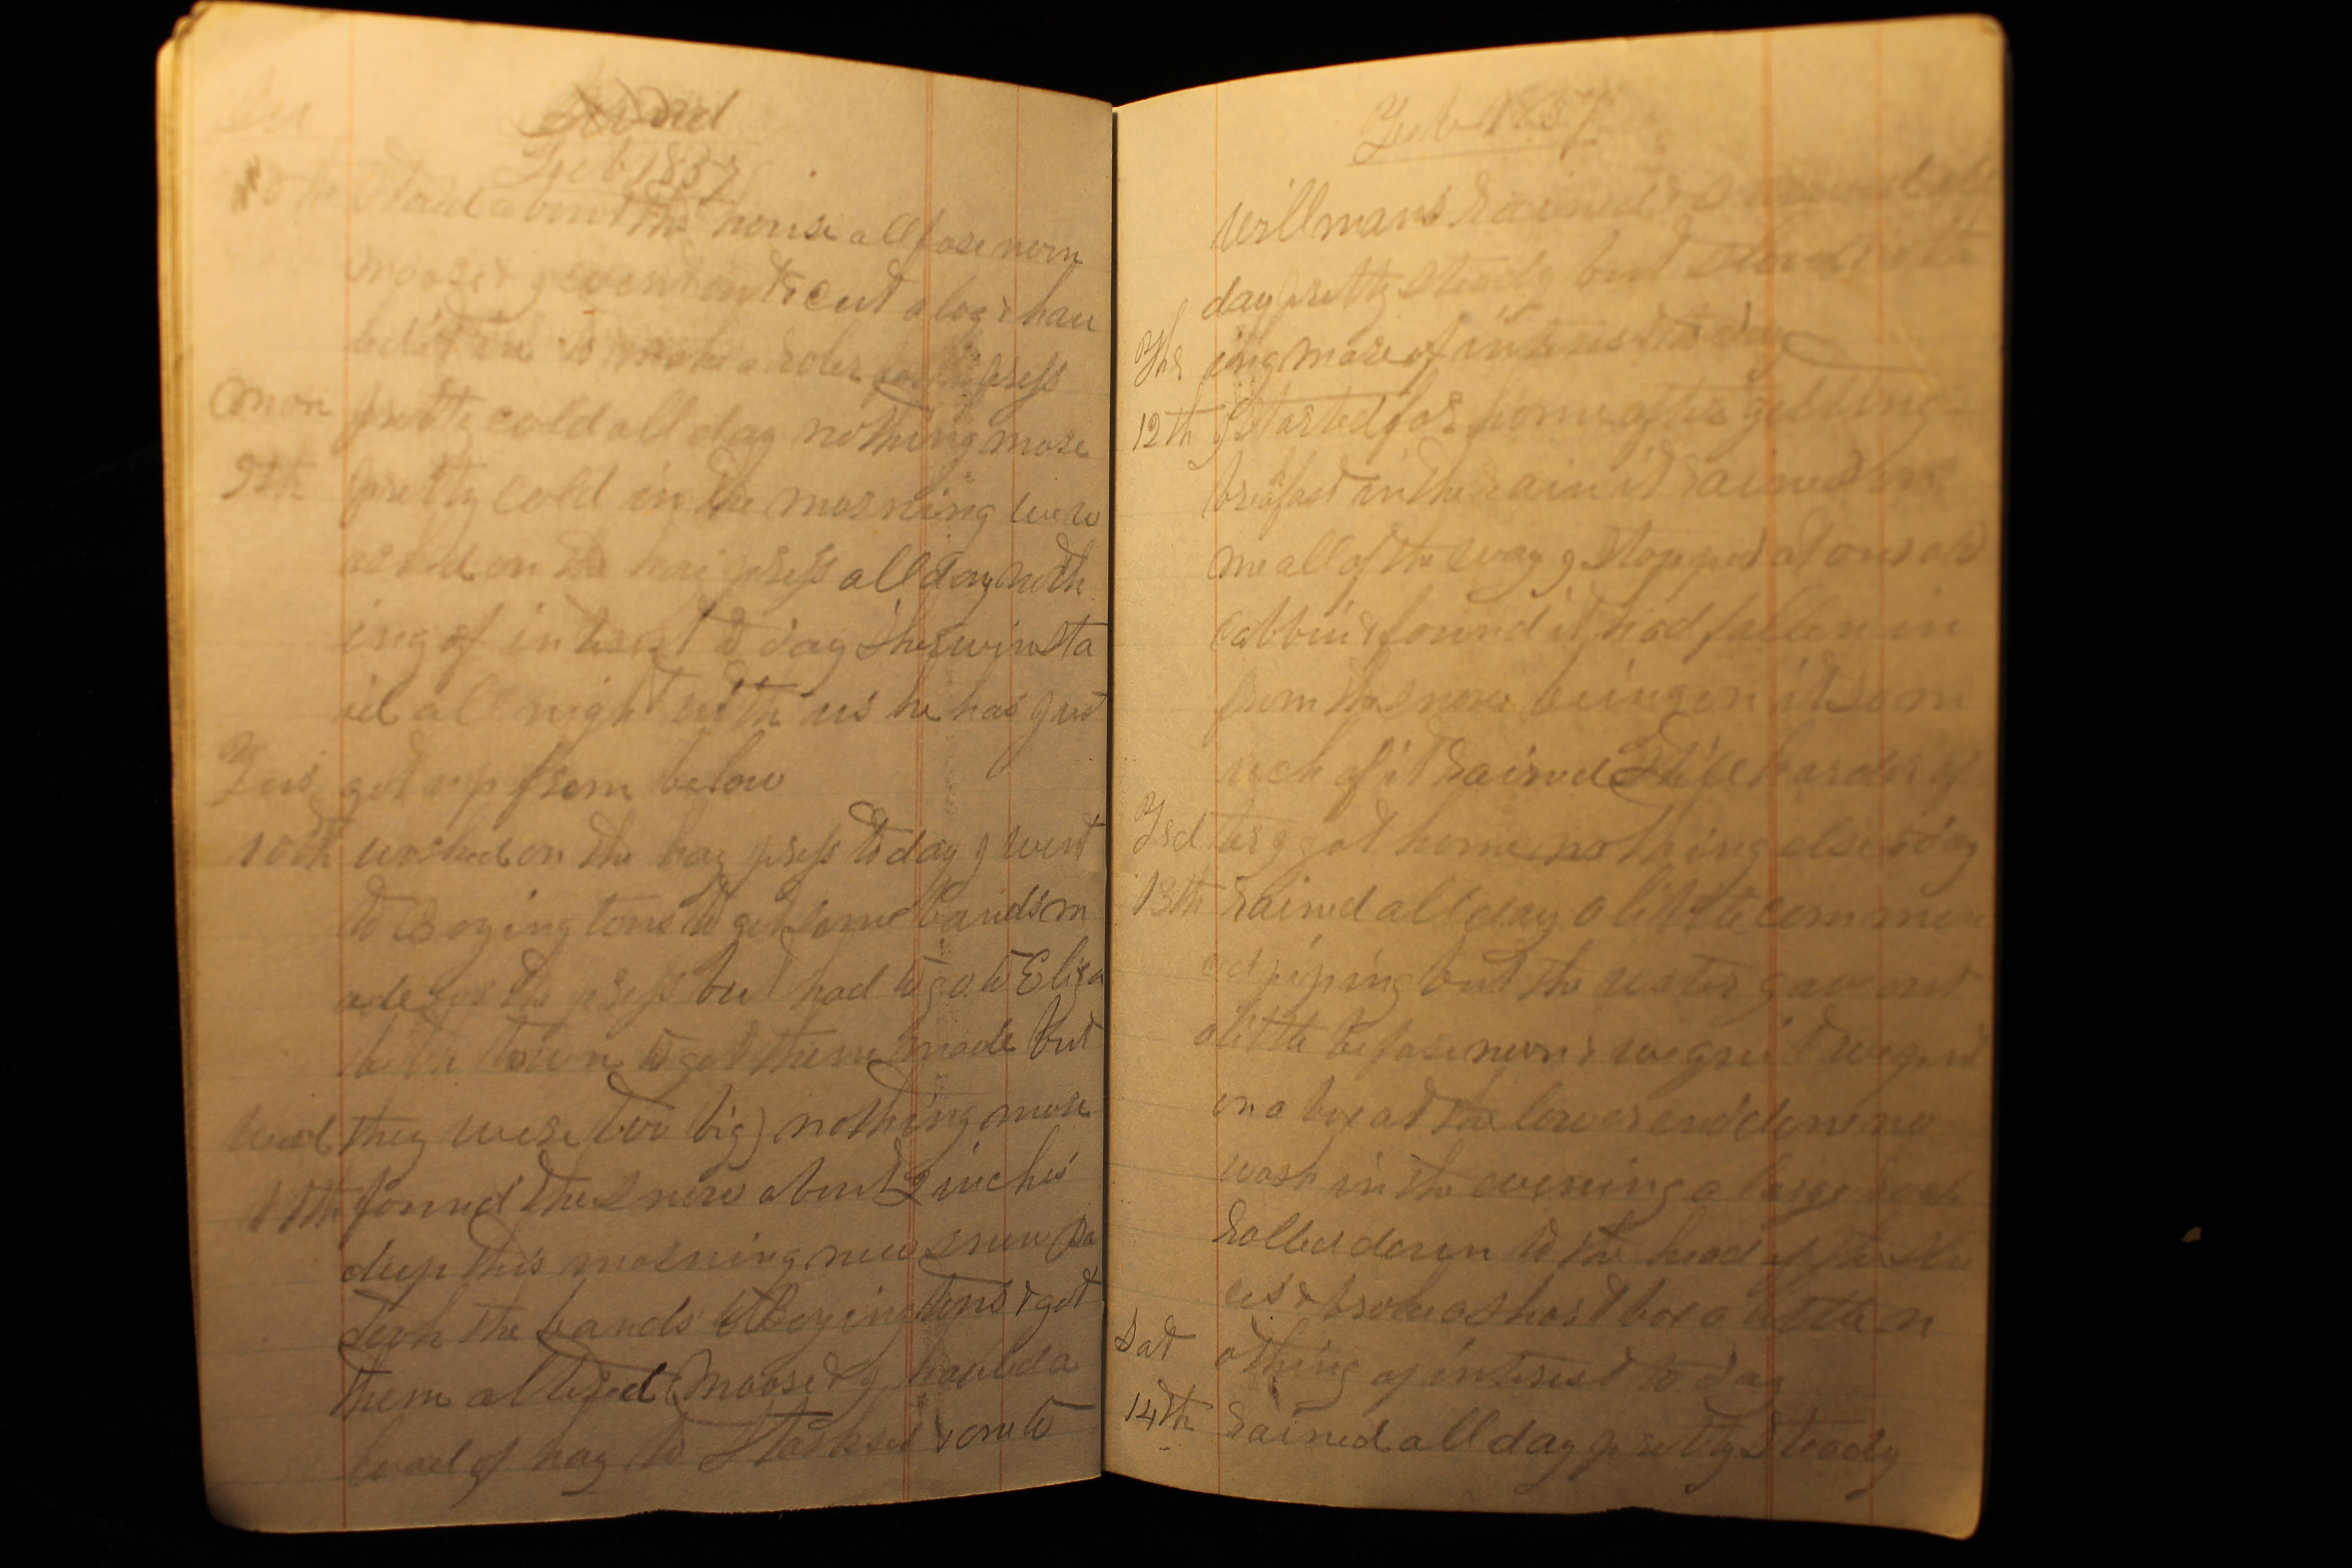 Feb 1857
8th Staid about the house all fore noon
Moore & I went out & cut a log & hau
led it in to make a roler for the press
Mon pretty cold all day nothing more
9th pretty cold in the morning we w
orked on the hay press all day noth
ing of interest to day Sherwin sta
id all night with us he has just
Tus got up from below
10th worked on the hay press to day I went
to Boyingtons to get some bands m
ade for the press but had to go to Eliza
beth town to get them made but
Wed they were too big) nothing more
11th found the snow about 2 inches
deep this morning new snow Pa
took the bands to Boyingtons & got
them altered Moore & I hauled a
load of hay to & one to
Feb 1857
Willmans rained & snowed all
day pretty steady but slow noth
Ths ing more of interest to day
12th I started for home after getting
breafast in the rain it rained on
me all of the way I stopped at our old
cabbin & found it had fallen in
from the snow being on it so m
uch of it rained still harder af
Frd ter I got home nothing else to day
13th rained all day a little commen
ced piping but the water gave out
a little before noon & we quit we put
in a box at the lower end done no
wash in the evening a large rock
rolled down to the head of the slu
ces & broke a short box a little n
Sat othing of interest to day
14th rained all day pretty steady